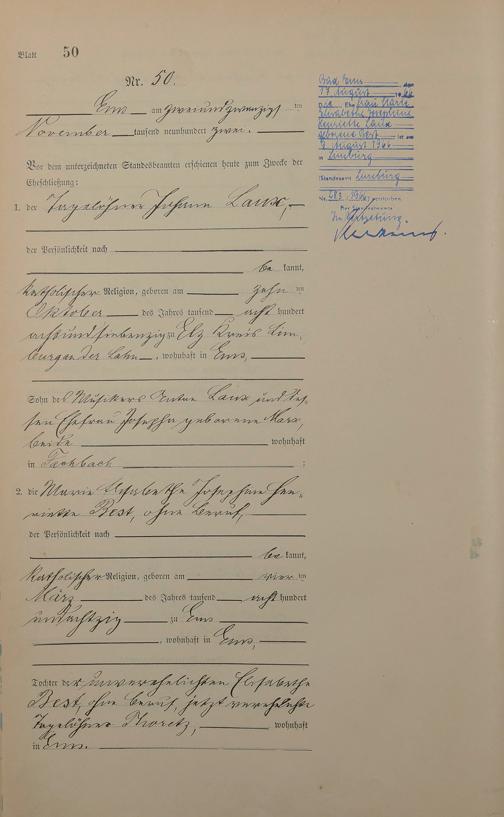 Blatt 50
Nr. 50.
Ems am zweiundzwanzigsten
November tausend neunhundert zwei.
Vor dem unterzeichneten Standesbeamten erschienen heute zum Zwecke der
Eheschließung:
1. der Tagelöhner Johann Laux,
der Persönlichkeit nach
be kannt,
katholischer Religion, geboren am zehnten
Oktober des Jahres tausend acht hundert
achtundsiebenzig zu Elz Kreis Lim,
burg an der Lahn, wohnhaft in Ems,
Sohn des Musikers Anton Laux und des,
sen Ehefrau Josepha geborene
beide wohnhaft
in Fachbach ;
2. die Marie Elisabethe Josephine Hen,
riette Best, ohne Beruf,
der Persönlichkeit nach
be kannt,
katholischer Religion, geboren am vierten
März des Jahres tausend acht hundert
undachtzig zu Ems
, wohnhaft in Ems,
Tochter der unverehelichten Elisabethe
Best, ohne Beruf, jetzt verehelichte
Tagelöhner wohnhaft
in Ems.
Bad Ems, den
17. August 1966
Die Ehefrau Marie
Elisabethe Josephine
Henriette Laux
geborene Best ist am
August 1966
in Limburg
Standesamt Limburg
Nr. verstorben.
Der Standesbeamte
In Vertretung.